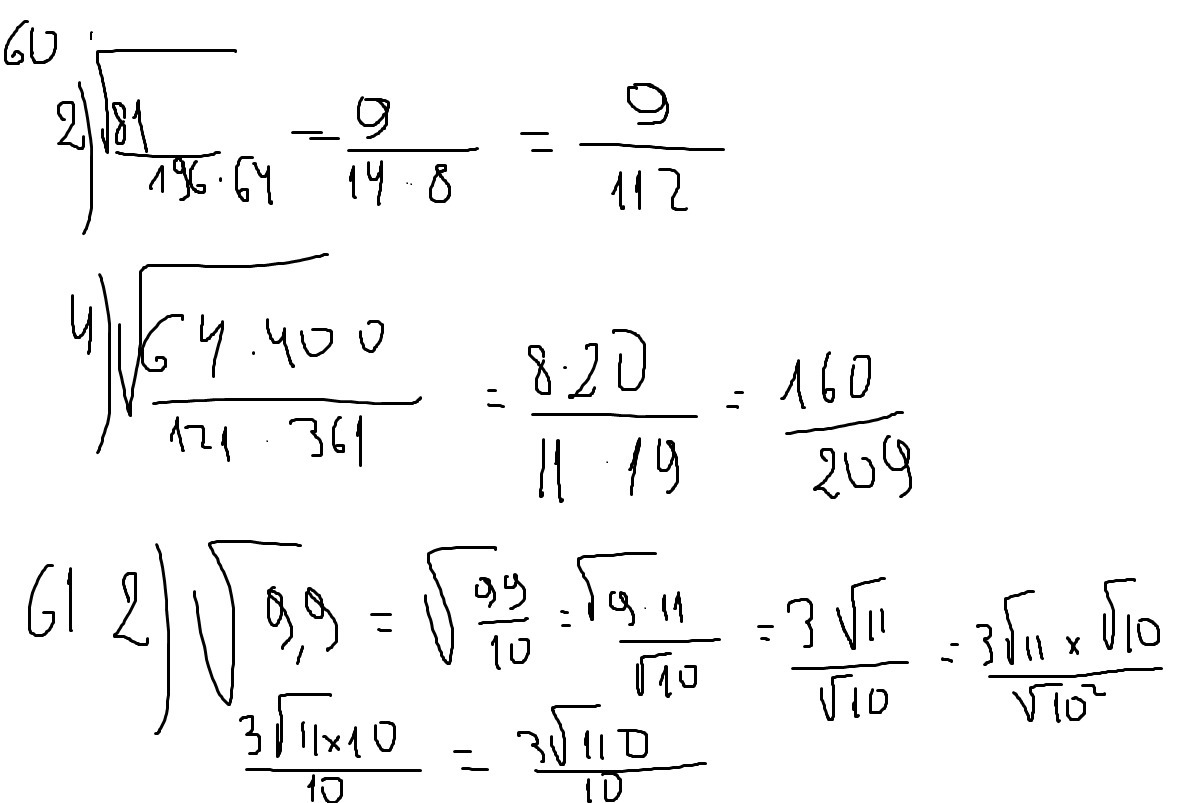 60
2) √81/196·64 = 9/14·8 = 9/112
4) √64·400/121·361 = 8·20/11·19 = 160/209
61 2) √9,9 = √99/10 = √9·11/√10 = 3√11/√10 = 3√11 × √10/√10²
3√11×10/10 = 3√110/10